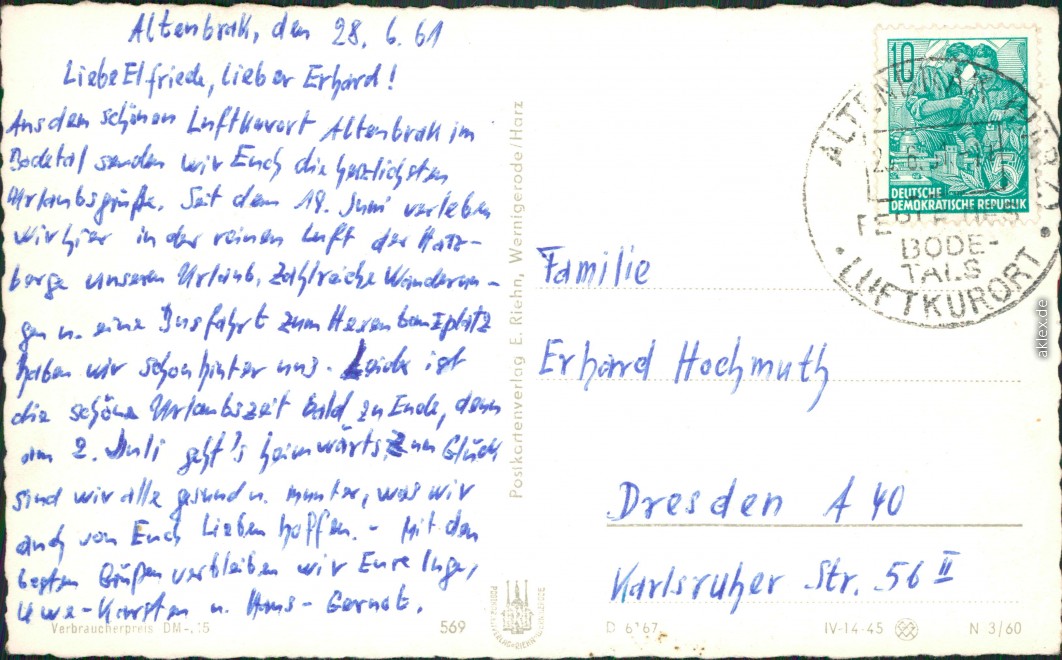 Altenbrak, den 28. 6. 61
Liebe Elfriede, lieber Erhard!
Aus dem schönen Luftkurort Altenbrak im
Bodetal senden wir Euch die herzlichsten
Urlaubsgrüße. Seit dem 18. Juni verleben
wir hier in der reinen Luft der Harz-
berge unseren Urlaub. Zahlreiche Wanderun-
gen u. eine Busfahrt zum Hexentanzplatz
haben wir schon hinter uns. Leider ist
die schöne Urlaubszeit bald zu Ende, denn
am 2. Juli geht's heimwärts. Zum Glück
sind wir alle gesund u. munter, was wir
auch von Euch Lieben hoffen. - Mit den
besten Grüßen verbleiben wir Eure Inge,
Uwe-Karsten u. Hans-Gernot.
Verbraucherpreis DM -,15
569
Postkartenverlag E. Riehn, Wernigerode/Harz
10
DEUTSCHE
DEMOKRATISCHE REPUBLIK
5
BODE-
TALS
LUFTKURORT
Familie
Erhard Hochmuth
Dresden A 40
Karlsruher Str. 56 II
IV-14-45
N 3/60
aklex.de